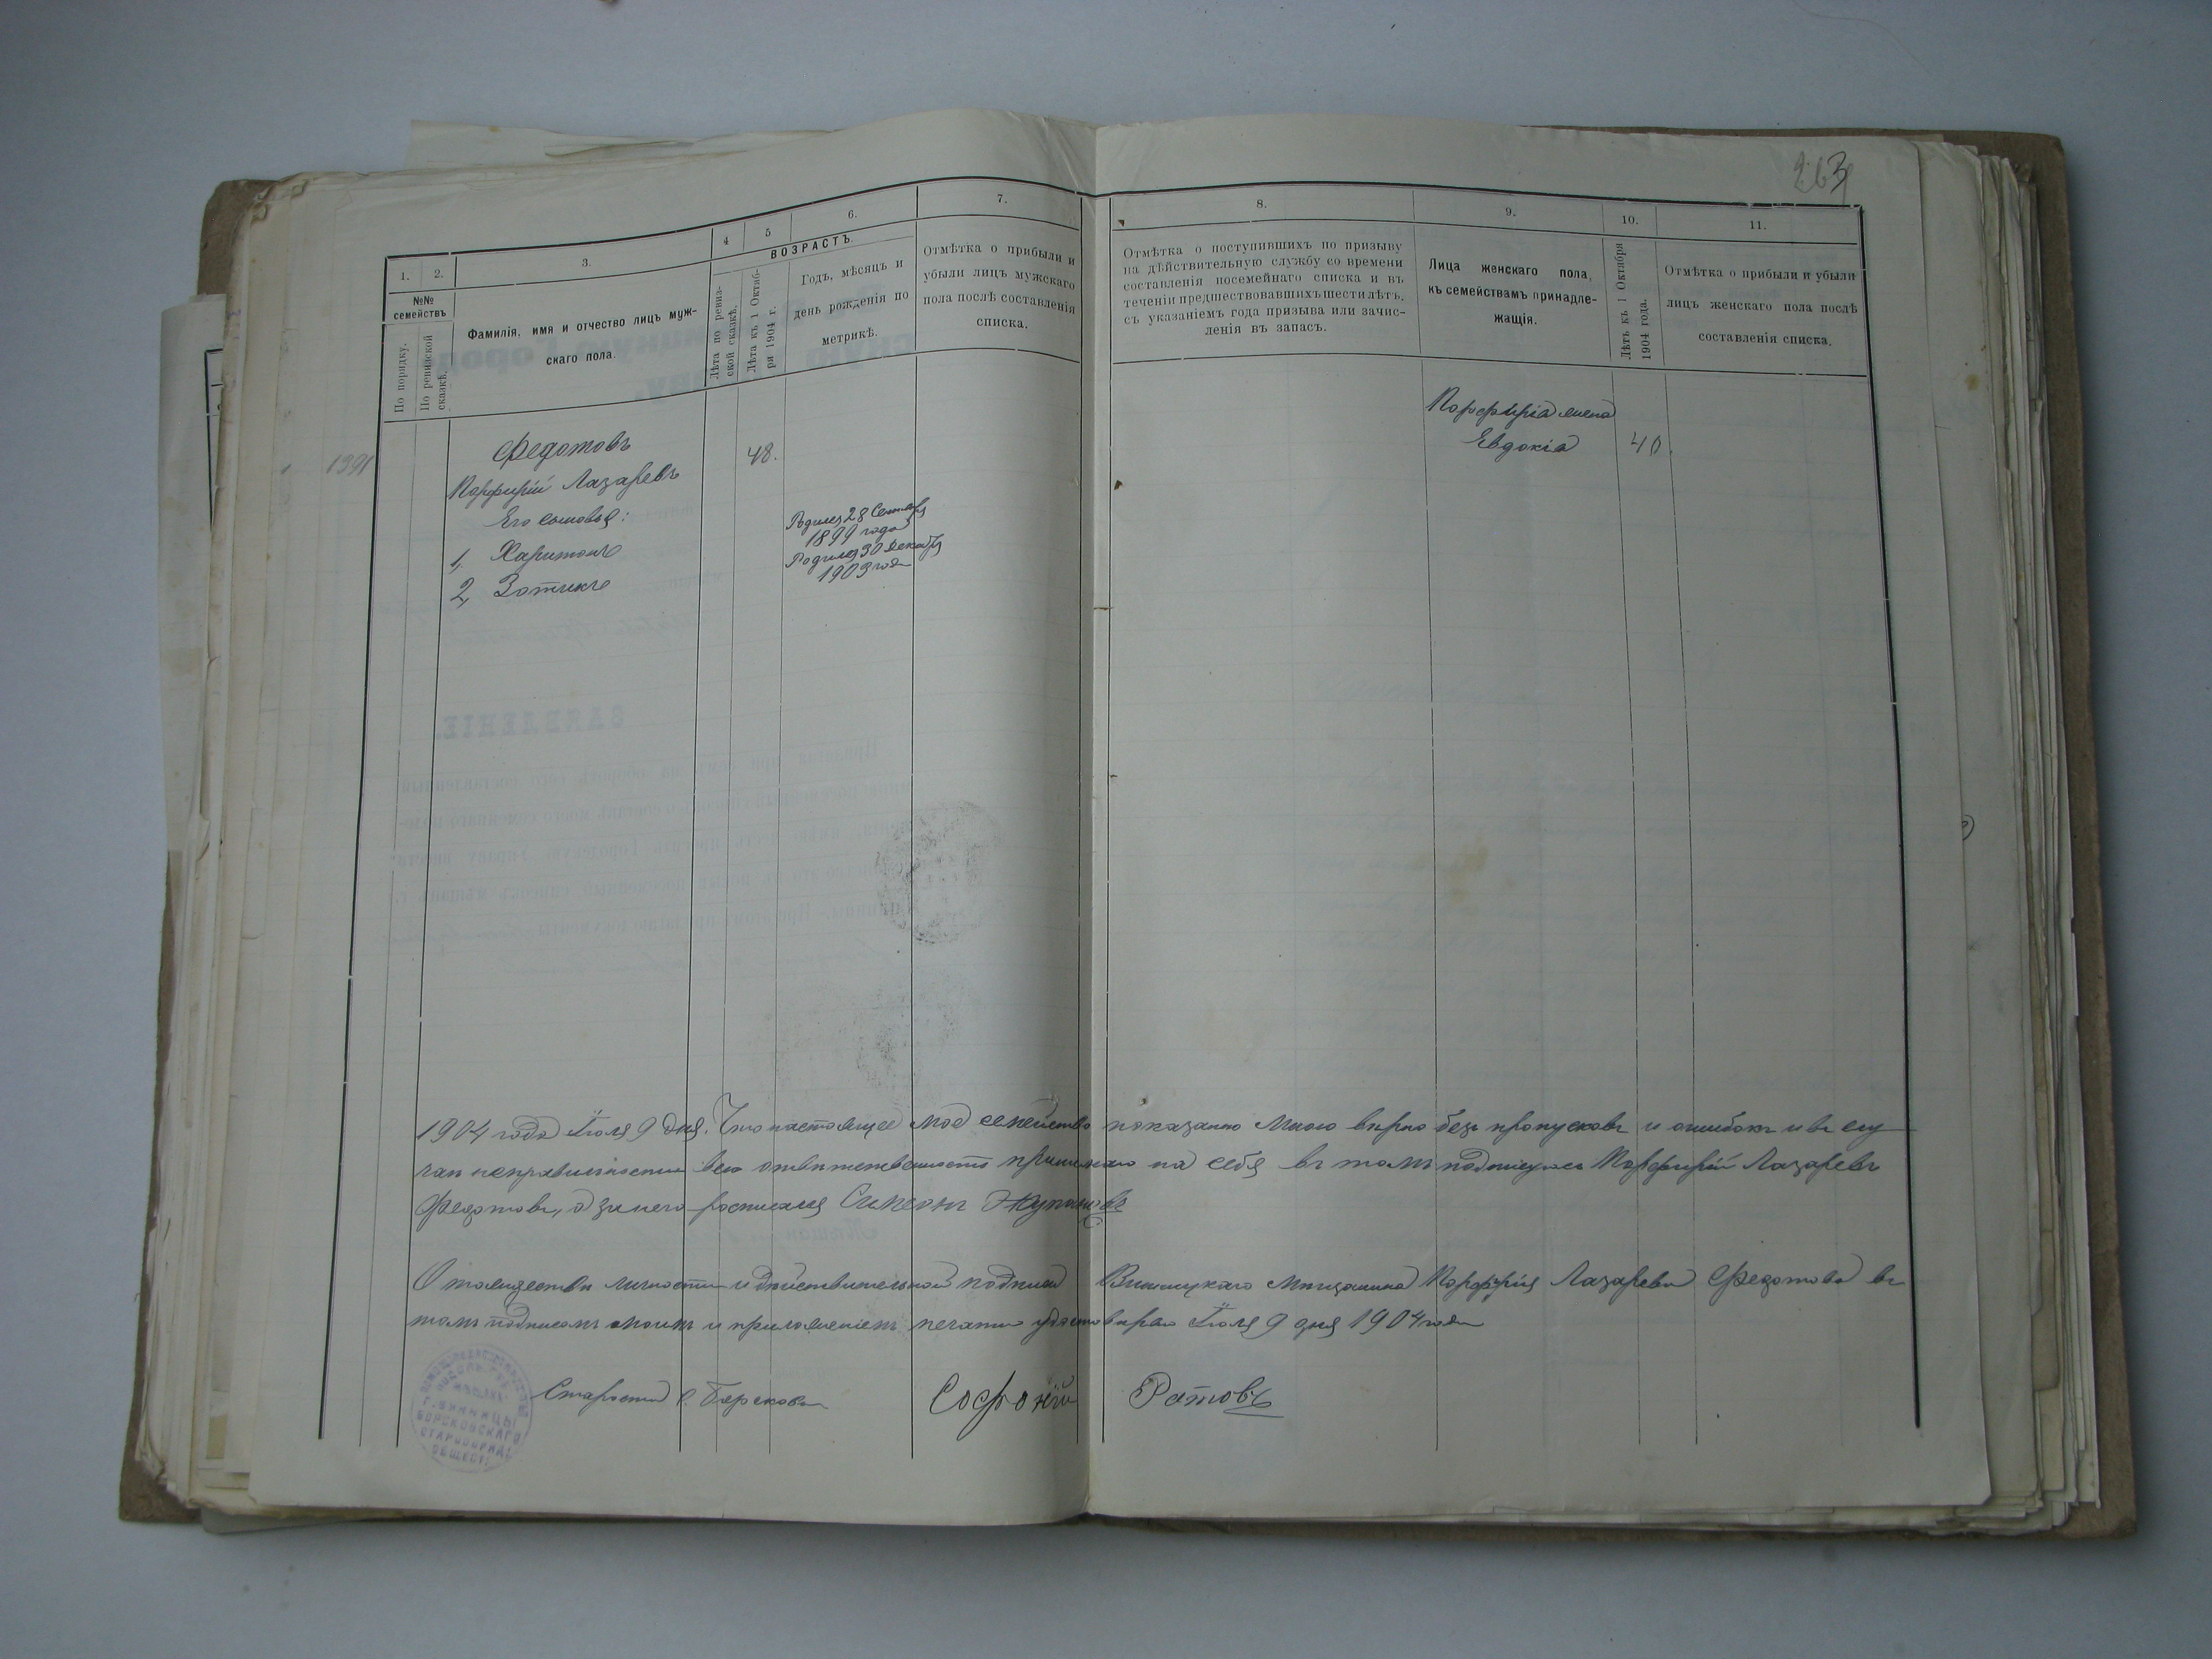 263
1.
2.
3.
4
5
6.
7.
8.
9.
10.
11.
№№
семействъ
По порядку.
По ревизской
сказкѣ.
Фамилія, имя и отчество лицъ муж-
скаго пола.
ВОЗРАСТЪ.
Лѣта по ревиз-
ской сказкѣ.
Лѣта къ 1 Октяб-
ря 1904 г.
Годъ, мѣсяцъ и
день рожденія по
метрикѣ.
Отмѣтка о прибыли и
убыли лицъ мужскаго
пола послѣ составленія
списка.
Отмѣтка о поступившихъ по призыву
на дѣйствительную службу со времени
составленія посемейнаго списка и въ
теченіи предшествовавшихъ шести лѣтъ,
съ указаніемъ года призыва или зачис-
ленія въ запасъ.
Лица женскаго пола,
къ семействамъ принадле-
жащія.
Лѣтъ къ 1 Октября
1904 года.
Отмѣтка о прибыли и убыли
лицъ женскаго пола послѣ
составленія списка.
1391
Федотовъ
Порфирій Лазаревъ
48.
Его сыновья:
1, Харитонъ
Родился 28 Сентября
1899 года
2, Зотикъ
Родился 30 Декабря
1903 года
Порфирія жена
Евдокія
40.
1904 года Іюля 9 дня. Что настоящее мое семейство показано мною вѣрно безъ пропусковъ и ошибокъ и въ слу
чаи неправильности всю отвѣтственность принимаю на себя въ томъ подписуюсь Порфирій Лазаревъ
Федотовъ, а за него росписался Симеонъ
О тождествѣ личности и дѣйствительной подписи Винницкаго мѣщанина Порфирія Лазарева Федотова въ
томъ подписомъ моимъ и приложеніемъ печати удостовѣряю Іюля 9 дня 1904 года
Староста с. Борскова Софоній Ратовъ
Г. ВИННИЦЫ
БОРСКОВСКАГО
СТАРООБРЯД.
ОБЩЕСТ.
ЗАЯВЛЕНІЕ.